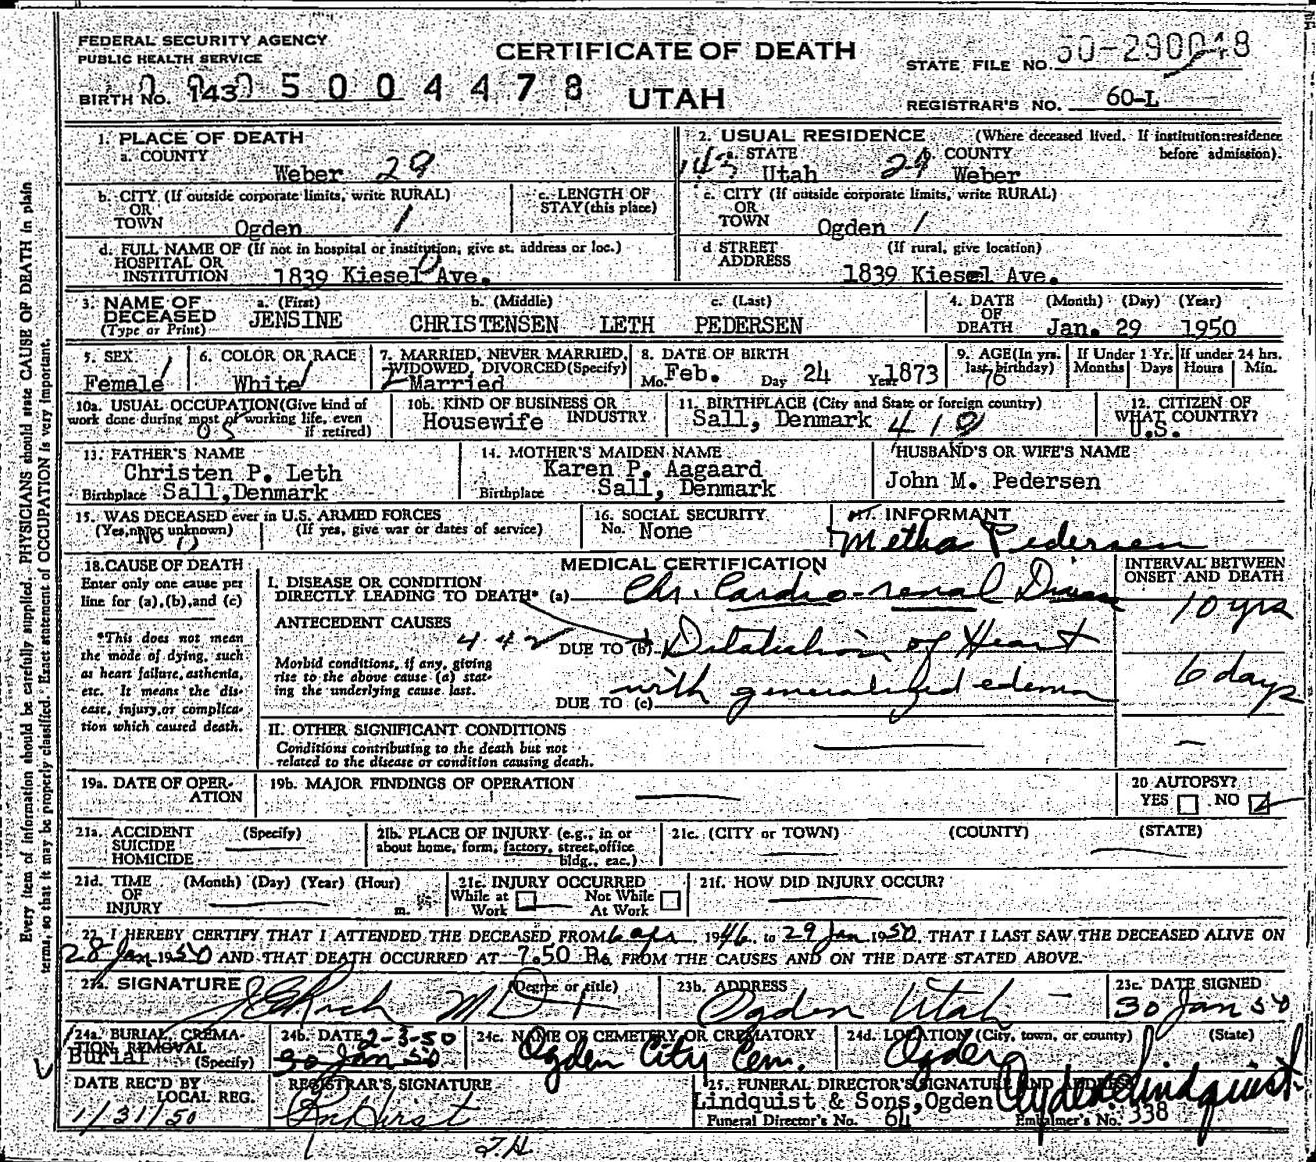 FEDERAL SECURITY AGENCY
PUBLIC HEALTH SERVICE
CERTIFICATE OF DEATH
STATE FILE NO.
BIRTH NO. 143 5004478
UTAH
REGISTRAR'S NO. 60-L
1. PLACE OF DEATH
a. COUNTY
Weber 29
2. USUAL RESIDENCE (Where deceased lived. If institution:residence before admission).
143 a. STATE 29 b. COUNTY
Utah Weber
b. CITY (If outside corporate limits, write RURAL)
OR
TOWN Ogden 1
c. LENGTH OF
STAY (this place)
c. CITY (If outside corporate limits, write RURAL)
OR
TOWN Ogden 1
d. FULL NAME OF (If not in hospital or institution, give st. address or loc.)
HOSPITAL OR
INSTITUTION 1839 Kiesel Ave.
d STREET (If rural, give location)
ADDRESS
1839 Kiesel Ave.
3. NAME OF a. (First) b. (Middle) c. (Last)
DECEASED JENSINE CHRISTENSEN LETH PEDERSEN
(Type or Print)
4. DATE (Month) (Day) (Year)
OF
DEATH Jan. 29 1950
5. SEX
Female
6. COLOR OR RACE
White
7. MARRIED, NEVER MARRIED,
WIDOWED, DIVORCED (Specify)
Married
8. DATE OF BIRTH
Mo. Feb. Day 24 Year 1873
9. AGE (In yrs.
last birthday)
76
If Under 1 Yr.
Months Days
If under 24 hrs.
Hours Min.
10a. USUAL OCCUPATION (Give kind of
work done during most of working life, even
if retired)
10b. KIND OF BUSINESS OR
Housewife INDUSTRY
11. BIRTHPLACE (City and State or foreign country)
Sall, Denmark
12. CITIZEN OF
WHAT COUNTRY?
U.S.
13. FATHER'S NAME
Christen P. Leth
Birthplace Sall, Denmark
14. MOTHER'S MAIDEN NAME
Karen P. Aagaard
Birthplace Sall, Denmark
HUSBAND'S OR WIFE'S NAME
John M. Pedersen
15. WAS DECEASED ever in U.S. ARMED FORCES
(Yes, no or unknown) (If yes, give war or dates of service)
No
16. SOCIAL SECURITY
No. None
17. INFORMANT
Metha Pedersen
18. CAUSE OF DEATH
Enter only one cause per
line for (a), (b), and (c)
*This does not mean
the mode of dying, such
as heart failure, asthenia,
etc. It means the dis-
ease, injury, or complica-
tion which caused death.
MEDICAL CERTIFICATION
INTERVAL BETWEEN
ONSET AND DEATH
I. DISEASE OR CONDITION
DIRECTLY LEADING TO DEATH* (a) Chr. Cardio-renal Disease 10 yrs
ANTECEDENT CAUSES
442
DUE TO (b) Dilatation of Heart
Morbid conditions, if any, giving
rise to the above cause (a) stat-
ing the underlying cause last.
DUE TO (c) with generalized edema 6 days
II. OTHER SIGNIFICANT CONDITIONS
Conditions contributing to the death but not
related to the disease or condition causing death.
19a. DATE OF OPER-
ATION
19b. MAJOR FINDINGS OF OPERATION
20 AUTOPSY?
YES NO
21a. ACCIDENT (Specify)
SUICIDE
HOMICIDE
21b. PLACE OF INJURY (e.g., in or
about home, form, factory, street, office
bldg., eac.)
21c. (CITY or TOWN) (COUNTY) (STATE)
21d. TIME (Month) (Day) (Year) (Hour)
OF
INJURY m.
21e. INJURY OCCURRED
While at Work Not While At Work
21f. HOW DID INJURY OCCUR?
22. I HEREBY CERTIFY THAT I ATTENDED THE DECEASED FROM 6 apr 1946, to 29 Jan 1950, THAT I LAST SAW THE DECEASED ALIVE ON
28 Jan 1950 AND THAT DEATH OCCURRED AT 7.50 P.m. FROM THE CAUSES AND ON THE DATE STATED ABOVE.
23a. SIGNATURE (Degree or title)
Rich MD
23b. ADDRESS
Ogden Utah
23c. DATE SIGNED
30 Jan 50
24a. BURIAL, CREMA-
TION, REMOVAL
Burial (Specify)
24b. DATE 2-3-50
30 Jan 50
24c. NAME OF CEMETERY OR CREMATORY
Ogden City Cem.
24d. LOCATION (City, town, or county) (State)
Ogden
DATE REC'D BY
LOCAL REG.
1/31/50
REGISTRAR'S SIGNATURE
25. FUNERAL DIRECTOR'S SIGNATURE AND ADDRESS
Lindquist & Sons, Ogden Clyde Lindquist
Funeral Director's No. 64 Embalmer's No. 338
Every item of information should be carefully supplied. PHYSICIANS should state CAUSE OF DEATH in plain
terms, so that it may be properly classified. Exact statement of OCCUPATION is very important.